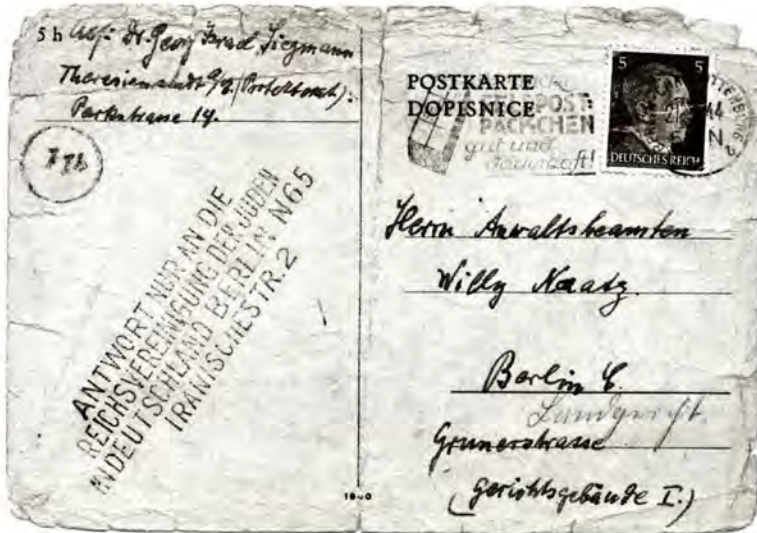 5 h Abs: Dr. Georg Israel Siegmann
Theresienstadt
Parkstrasse 14.
ANTWORT NUR AN DIE
REICHSVEREINIGUNG DER JUDEN
IN DEUTSCHLAND BERLIN N65
IRANISCHESTR. 2
POSTKARTE
DOPISNICE
POST
PÄCKCHEN
gut und
dauerhaft!
5 5
DEUTSCHES REICH
Herrn Anwaltsbeamten
Willy Naatz.
Berlin C.
Landgericht.
Grunerstrasse
(Gerichtsgebäude I.)
1940